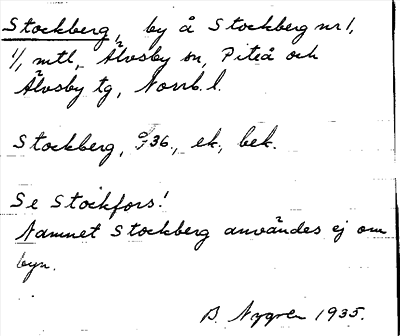 Stockberg, by å Stockberg nr 1,
1/1 mtl, Älvsby sn, Piteå och
Älvsby tg, Norrb. l.
Stockberg, G36., ek., bek.
Se Stockfors!
Namnet Stockberg användes ej om
byn.
B. Nygren 1935.